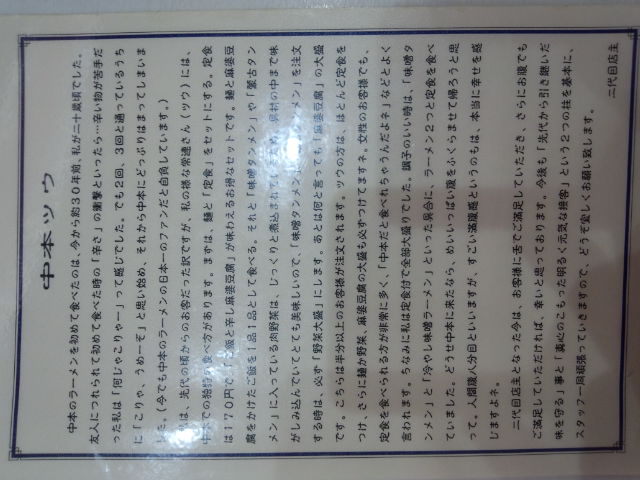 中本ツウ
中本のラーメンを初めて食べたのは、今から約30年前、私が二十歳頃でした。
友人につれられて初めて食べた時の「辛さ」の衝撃といったら…辛い物が苦手だ
った私は「何じゃこりゃー」って感じでした。でも2回、3回と通っているうち
に「こりゃ、うめーぞ」と思い始め、それから中本にどっぷりはまってしまいま
した。(今でも中本のラーメンの日本一のファンだと自負しています。)
私は、先代の頃からのお客だった訳ですが、私の様な常連さん(ツウ)には、
中本での独特の食べ方があります。まずは、麺と「定食」をセットにする。定食
は170円で、「ご飯と辛し麻婆豆腐」が味わえるお得なセットです。麺と麻婆豆
腐をかけたご飯を1品1品として食べる。それと「味噌タンメン」や「蒙古タン
メン」に入っている肉野菜は、じっくりと煮込まれているため、具材の中まで味
がしみ込んでいてとても美味しいので、「味噌タンメン」「
メン」を注文
する時は、必ず「野菜大盛」にします。あとは何と言っても「麻婆豆腐」の大盛
です。こちらは半分以上のお客様が注文されます。ツウの方は、ほとんど定食を
つけ、さらに麺か野菜、麻婆豆腐の大盛も必ずつけてますネ。女性のお客様でも、
定食を食べられる方が非常に多く、「中本だと食べれちゃうんだよネ」などとよく
言われます。ちなみに私は定食付で全部大盛りでした。調子のいい時は、「味噌タ
ンメン」と「冷やし味噌ラーメン」といった具合に、ラーメン2つと定食を食べ
ていました。どうせ中本に来たなら、めいいっぱい腹をふくらませて帰ろうと思
って。人間腹八分目といいますが、すごい満腹感というのも、本当に幸せを感
じますよネ。
二代目店主となった今は、お客様に舌でご満足していただき、さらにお腹でも
ご満足していただければ、幸いと思っております。今後も「先代から引き継いだ
味を守る」事と「真心のこもった明るく元気な接客」という2つの柱を基本に、
スタッフ一同頑張っていきますので、どうぞ宜しくお願い致します。
二代目店主